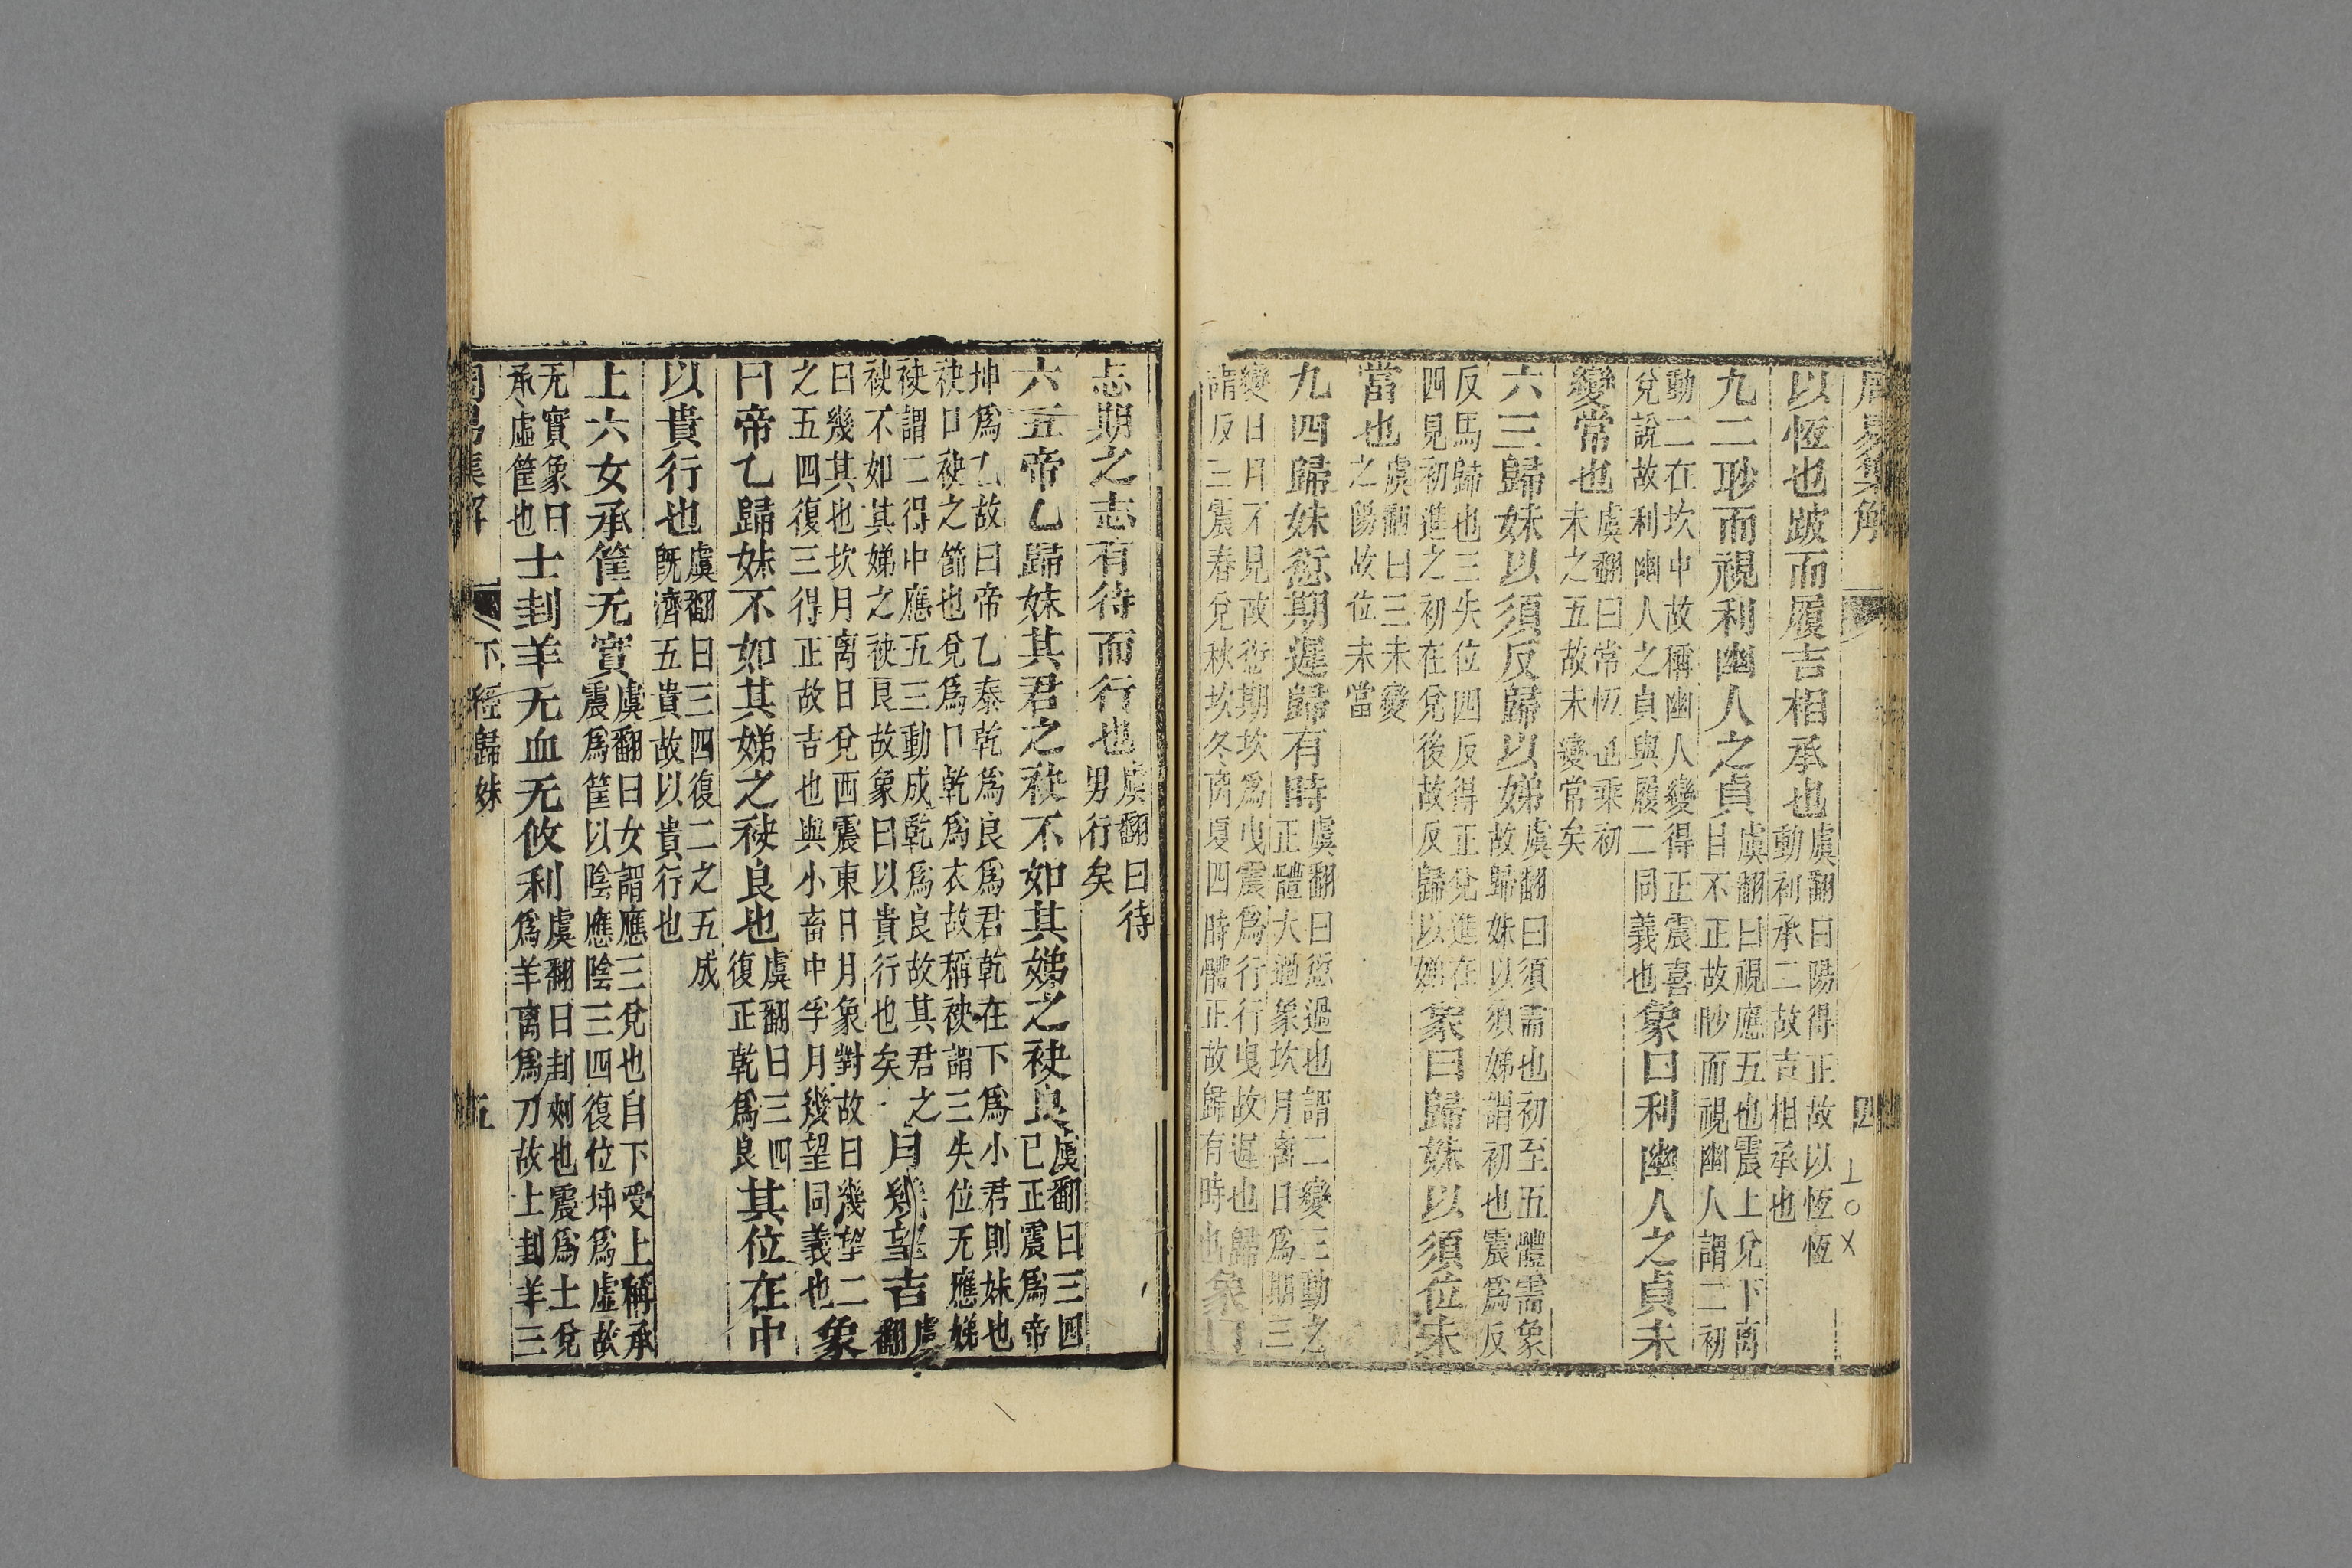 周易集解 四
以恆也跛而履吉相承也虞翻曰陽得正故以恆恆動初承二故吉相承也
九二眇而視利幽人之貞虞翻曰視應五也震上兌下离目不正故眇而視幽人謂二初
動二在坎中故稱幽人變得正震喜兌說故利幽人之貞與履二同義也象曰利幽人之貞未
變常也虞翻曰常恆也乘初未之五故未變常矣
六三歸妹以須反歸以娣虞翻曰須需也初至五體需象故歸妹以須娣謂初也震爲反
反馬歸也三失位四反得正兌進在四見初進之初在兌後故反歸以娣象曰歸妹以須位未
當也虞翻曰三未變之陽故位未當
九四歸妹愆期遲歸有時虞翻曰愆過也謂二變三動之正體大過象坎月离日爲期三
變日月不見故愆期坎爲曳震爲行行曳故遲也歸謂反三震春兌秋坎冬离夏四時體正故歸有時也象曰
志期之志有待而行也虞翻曰待男行矣
六五帝乙歸妹其君之袂不如其娣之袂良虞翻曰三四已正震爲帝
坤爲乙故曰帝乙泰乾爲良爲君乾在下爲小君則妹也袂口袂之飾也兌爲口乾爲衣故稱袂謂三失位无應娣
袂謂二得中應五三動成乾爲良故其君之袂不如其娣之袂良故象曰以貴行也矣月幾望吉虞翻
曰幾其也坎月离日兌西震東日月象對故曰幾望二之五四復三得正故吉也與小畜中孚月幾望同義也象
曰帝乙歸妹不如其娣之袂良也虞翻曰三四復正乾爲良其位在中
以貴行也虞翻曰三四復二之五成既濟五貴故以貴行也
上六女承筐无實虞翻曰女謂應三兌也自下受上稱承震爲筐以陰應陰三四復位坤爲虛故
无實象曰承虛筐也士刲羊无血无攸利虞翻曰刲刺也震爲士兌爲羊离爲刀故士刲羊三
周易集解 下經歸妹 五